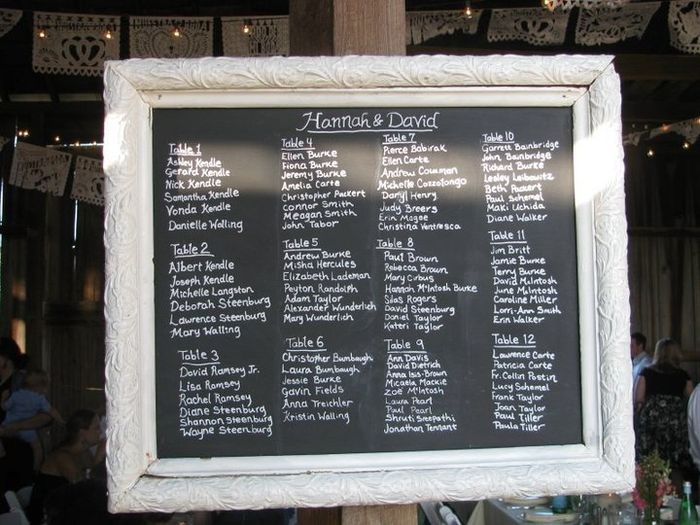 Hannah & David
Table 1
Ashley Kendle
Gerard Kendle
Nick Kendle
Samantha Kendle
Vonda Kendle
Danielle Walling
Table 2
Albert Kendle
Joseph Kendle
Michelle Langston
Deborah Steenburg
Lawrence Steenburg
Mary Walling
Table 3
David Ramsey Jr.
Lisa Ramsey
Rachel Ramsey
Diane Steenburg
Shannon Steenburg
Wayne Steenburg
Table 4
Ellen Burke
Fiona Burke
Jeremy Burke
Amelia Carte
Christopher Packert
Connor Smith
Meagan Smith
John Tabor
Table 5
Andrew Burke
Misha Hercules
Elizabeth Lademan
Peyton Randolph
Adam Taylor
Alexander Wunderlich
Mary Wunderlich
Table 6
Christopher Bumbaugh
Laura Bumbaugh
Jessie Burke
Gavin Fields
Anna Treichler
Kristin Walling
Table 7
Pierce Babirak
Ellen Carte
Andrew
Michelle Cozzolongo
Daryl Henry
Judy Breers
Erin Magee
Christina Ventresca
Table 8
Paul Brown
Rebecca Brown
Mary Cirbus
Hannah McIntosh Burke
Silas Rogers
David Steenburg
Daniel Taylor
Kateri Taylor
Table 9
Ann Davis
David Dietrich
Anna Isis-Brown
Micaela Mackie
Zoe McIntosh
Laura Pearl
Paul Pearl
Shruti Sreepathi
Jonathan Tennant
Table 10
Garrett Bainbridge
John Bainbridge
Richard Burke
Lesley Leibowitz
Beth Packert
Paul Schemel
Maki Uchida
Diane Walker
Table 11
Jim Britt
Jamie Burke
Terry Burke
David McIntosh
June McIntosh
Caroline Miller
Lorri-Ann Smith
Erin Walker
Table 12
Lawrence Carte
Patricia Carte
Fr. Collin Poston
Lucy Schemel
Frank Taylor
Joan Taylor
Paul Tiller
Paula Tiller